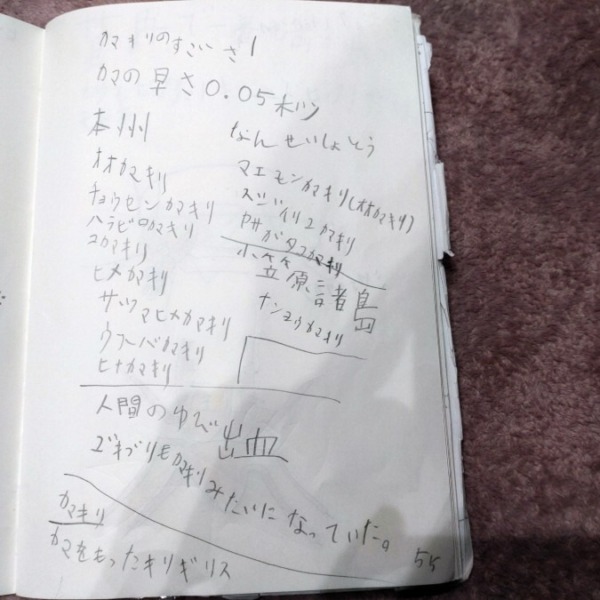 カマキリのすごーさ!
カマの早さ0.05秒
本州
オオカマキリ
チョウセンカマキリ
ハラビロカマキリ
コカマキリ
ヒメカマキリ
サツマヒメカマキリ
ウスーバカマキリ
ヒナカマキリ
なんせいしょとう
マエモンカマキリ(オオカマキリ)
スジイリコカマキリ
ヤサガタコカマキリ
小笠原諸島
ナンヨウカマキリ
人間のゆび出血
ゴキブリもカマキリみたいになっていた。
カマキリ
カマをもったキリギリス